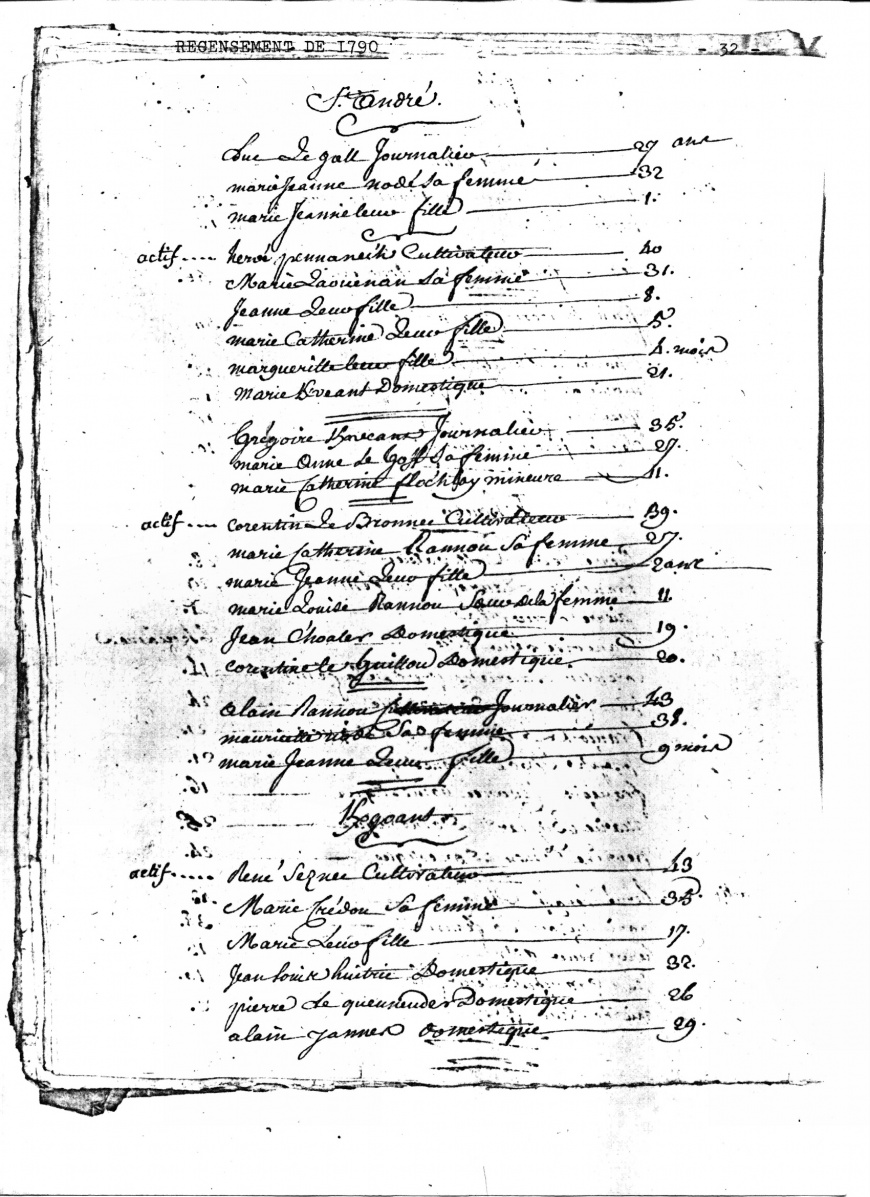 RECENSEMENT DE 1790 - 32 -
St. André.
Luc Le gall Journalier 29 ans
marie Jeanne nodé Sa femme 32
marie Jeanne leur fille 1.
actif .... hervé pennanech Cultivateur 40
Marie Laouénan Sa femme 31.
Jeanne Leur fille 8.
marie Catherine Leur fille 5.
margueritte leur fille 4. mois
Marie Kveant Domestique 21.
Grégoire Journalier 35.
marie Anne Le Goff Sa femme 27.
marie Catherine floch lay mineure 11.
actif .... Corentin Le Bronnec Cultivateur 39.
marie Catherine Rannou Sa femme 27
marie Jeanne Leur fille 2 ans
marie Louise Rannou Sœur de la femme 11.
Jean C'hoaler Domestique 19
Corentin le Guillou Domestique 20.
alain Rannou Journalier 43
mauricette Sa femme 38.
marie Jeanne Leur fille 9 mois
Kgoant.
actif ..... René Seznec Cultivateur 43
Marie Crédou Sa femme 35.
Marie Leur fille 17.
Jean louis huitric Domestique 32.
pierre Le queuneuder Domestique 26
alain Jannes Domestique 29.